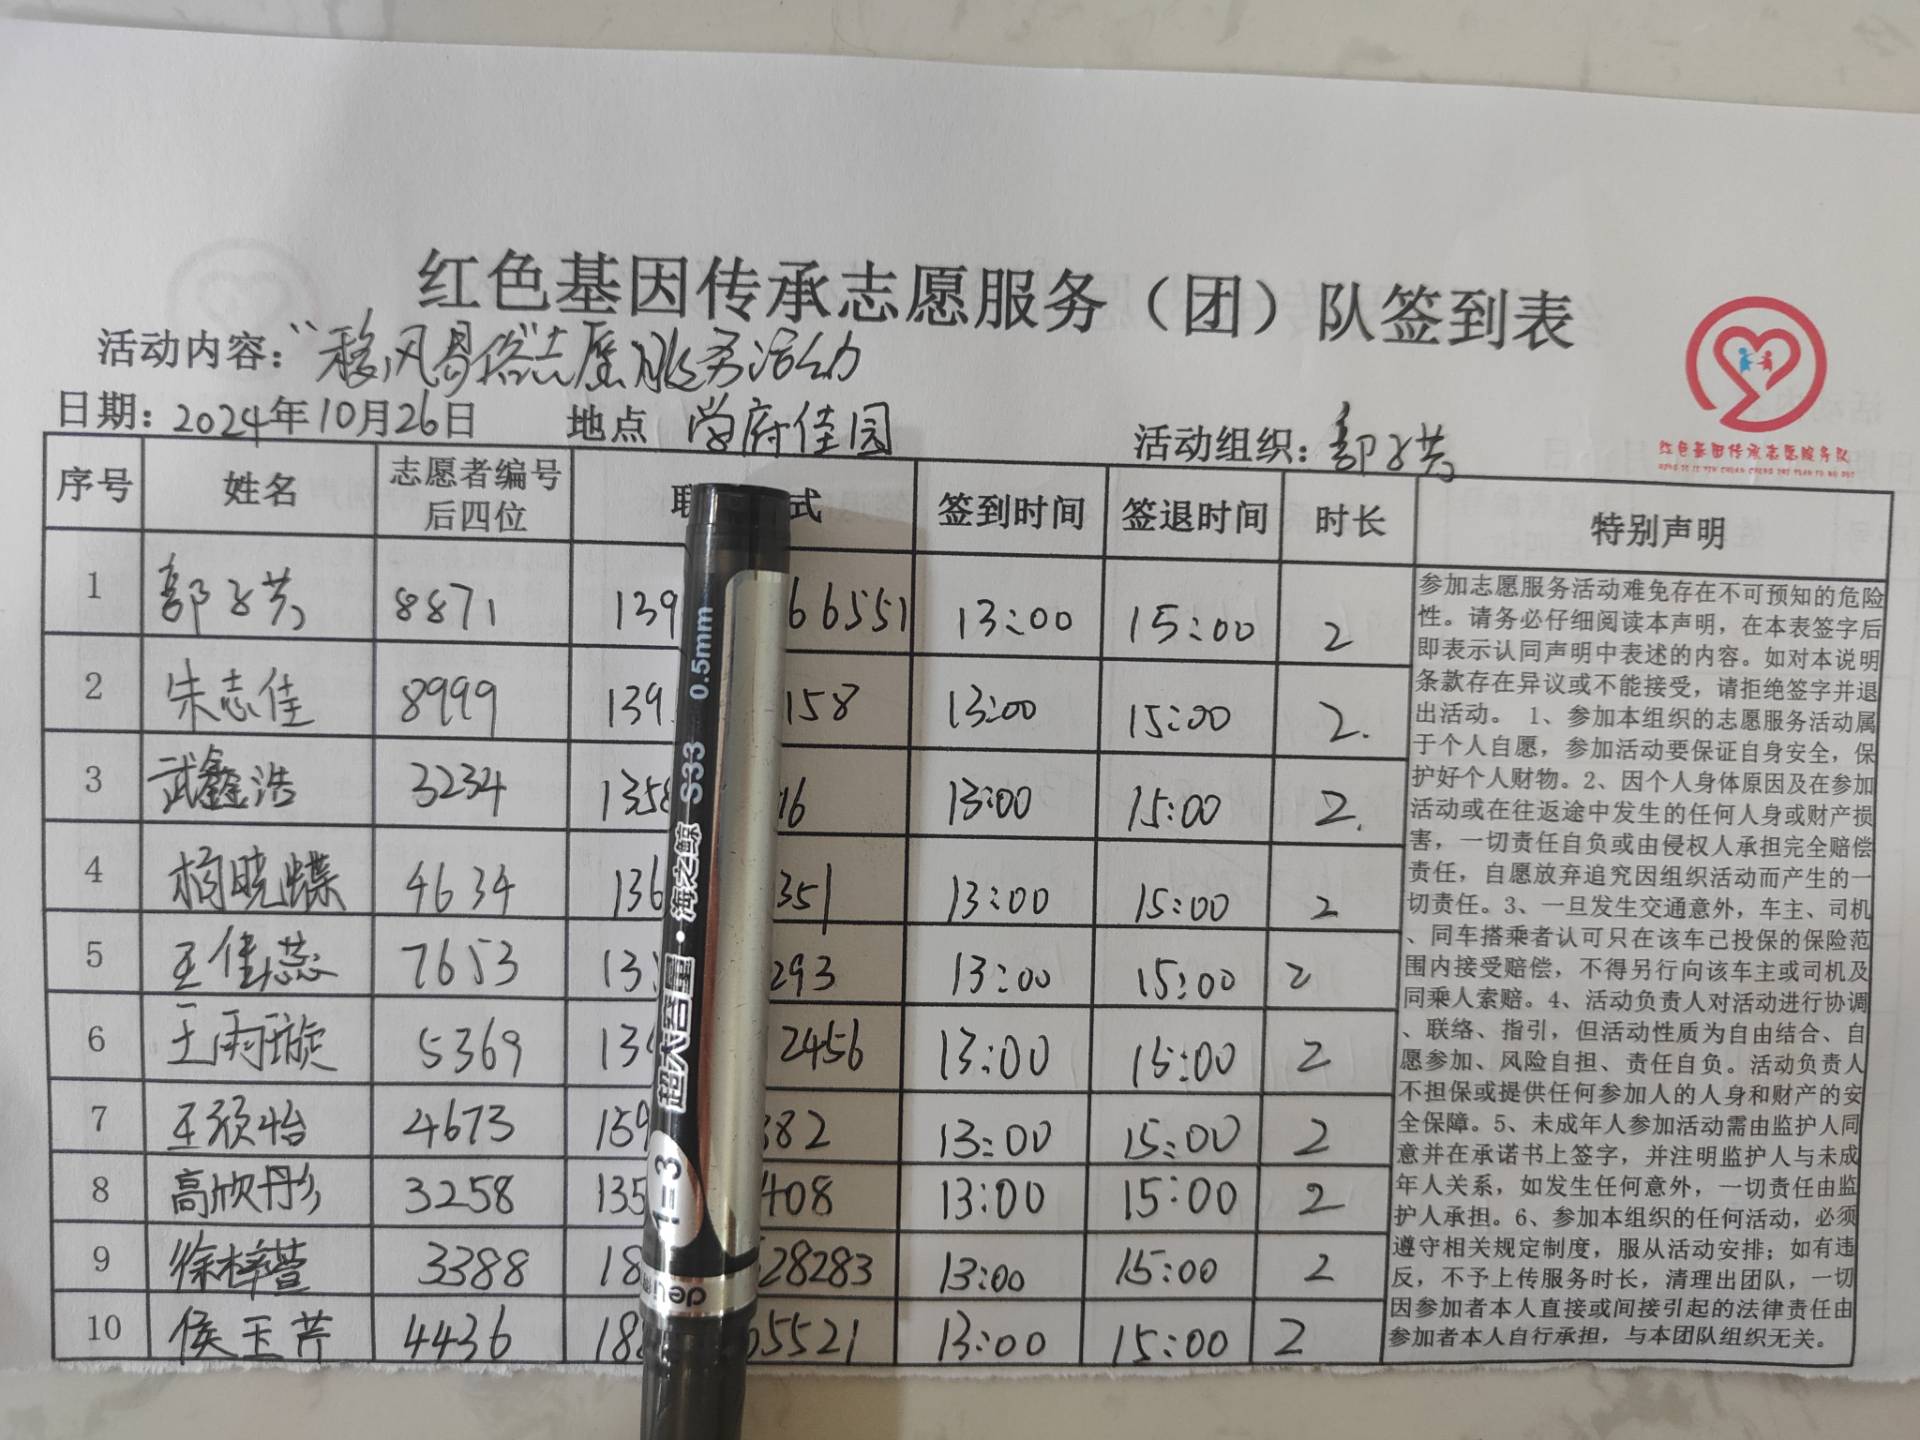 红色基因传承志愿服务（团）队签到表
活动内容："移风易俗"志愿服务活动
日期：2024年10月26日 地点 学府佳园 活动组织：郭子芸
红色基因传承志愿服务队
HONG SE JI YIN CHUAN CHENG ZHI YUAN FU WU DUI
序号 姓名 志愿者编号后四位 联 式 签到时间 签退时间 时长 特别声明
1 8871 139 66551 13:00 15:00 2
2 朱志佳 8999 139 158 13:00 15:00 2.
3 武鑫浩 3234 1358 16 13:00 15:00 2.
4 杨晓蝶 4634 136 351 13:00 15:00 2
5 王佳蕊 7653 13 293 13:00 15:00 2
6 王雨璇 5369 13 2456 13:00 15:00 2
7 王颀怡 4673 159 382 13:00 15:00 2
8 高欣彤 3258 135 408 13:00 15:00 2
9 徐梓萱 3388 18 28283 13:00 15:00 2
10 侯玉芹 4436 188 5521 13:00 15:00 2
参加志愿服务活动难免存在不可预知的危险
性。请务必仔细阅读本声明，在本表签字后
即表示认同声明中表述的内容。如对本说明
条款存在异议或不能接受，请拒绝签字并退
出活动。 1、参加本组织的志愿服务活动属
于个人自愿，参加活动要保证自身安全，保
护好个人财物。2、因个人身体原因及在参加
活动或在往返途中发生的任何人身或财产损
害，一切责任自负或由侵权人承担完全赔偿
责任，自愿放弃追究因组织活动而产生的一
切责任。3、一旦发生交通意外，车主、司机
、同车搭乘者认可只在该车已投保的保险范
围内接受赔偿，不得另行向该车主或司机及
同乘人索赔。4、活动负责人对活动进行协调
、联络、指引，但活动性质为自由结合、自
愿参加、风险自担、责任自负。活动负责人
不担保或提供任何参加人的人身和财产的安
全保障。5、未成年人参加活动需由监护人同
意并在承诺书上签字，并注明监护人与未成
年人关系，如发生任何意外，一切责任由监
护人承担。6、参加本组织的任何活动，必须
遵守相关规定制度，服从活动安排；如有违
反，不予上传服务时长，清理出团队，一切
因参加者本人直接或间接引起的法律责任由
参加者本人自行承担，与本团队组织无关。
0.5mm
S33
超大容量·海之鲸
1=3
deli